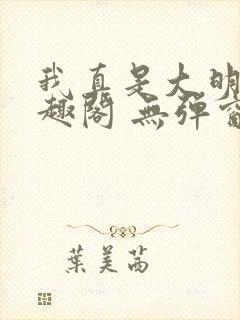 我真是大明
趣閣 無彈窗
葉美茜